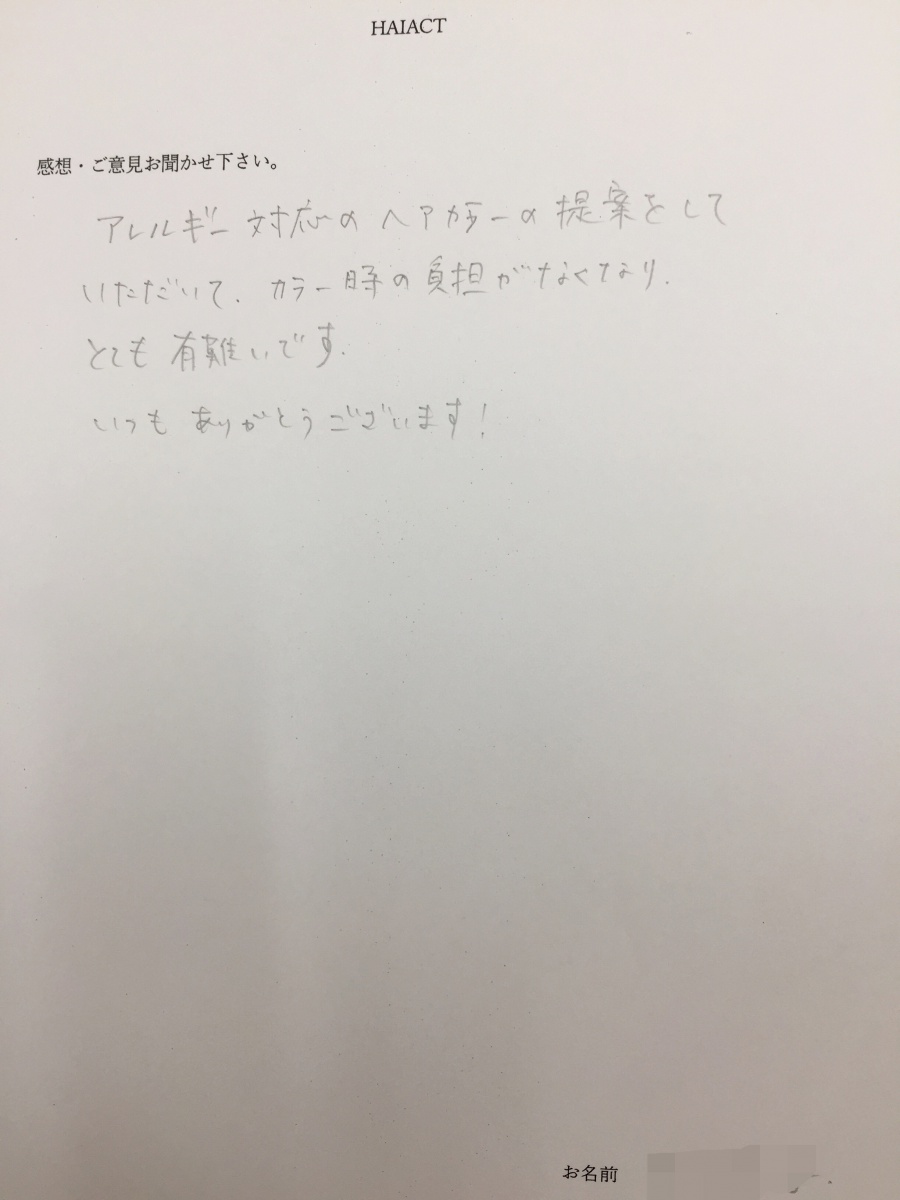 HAIACT
感想・ご意見お聞かせ下さい。
アレルギー対応のヘアカラーの提案をして
いただいて、カラー時の負担がなくなり、
とても有難いです。
いつもありがとうございます!
お名前